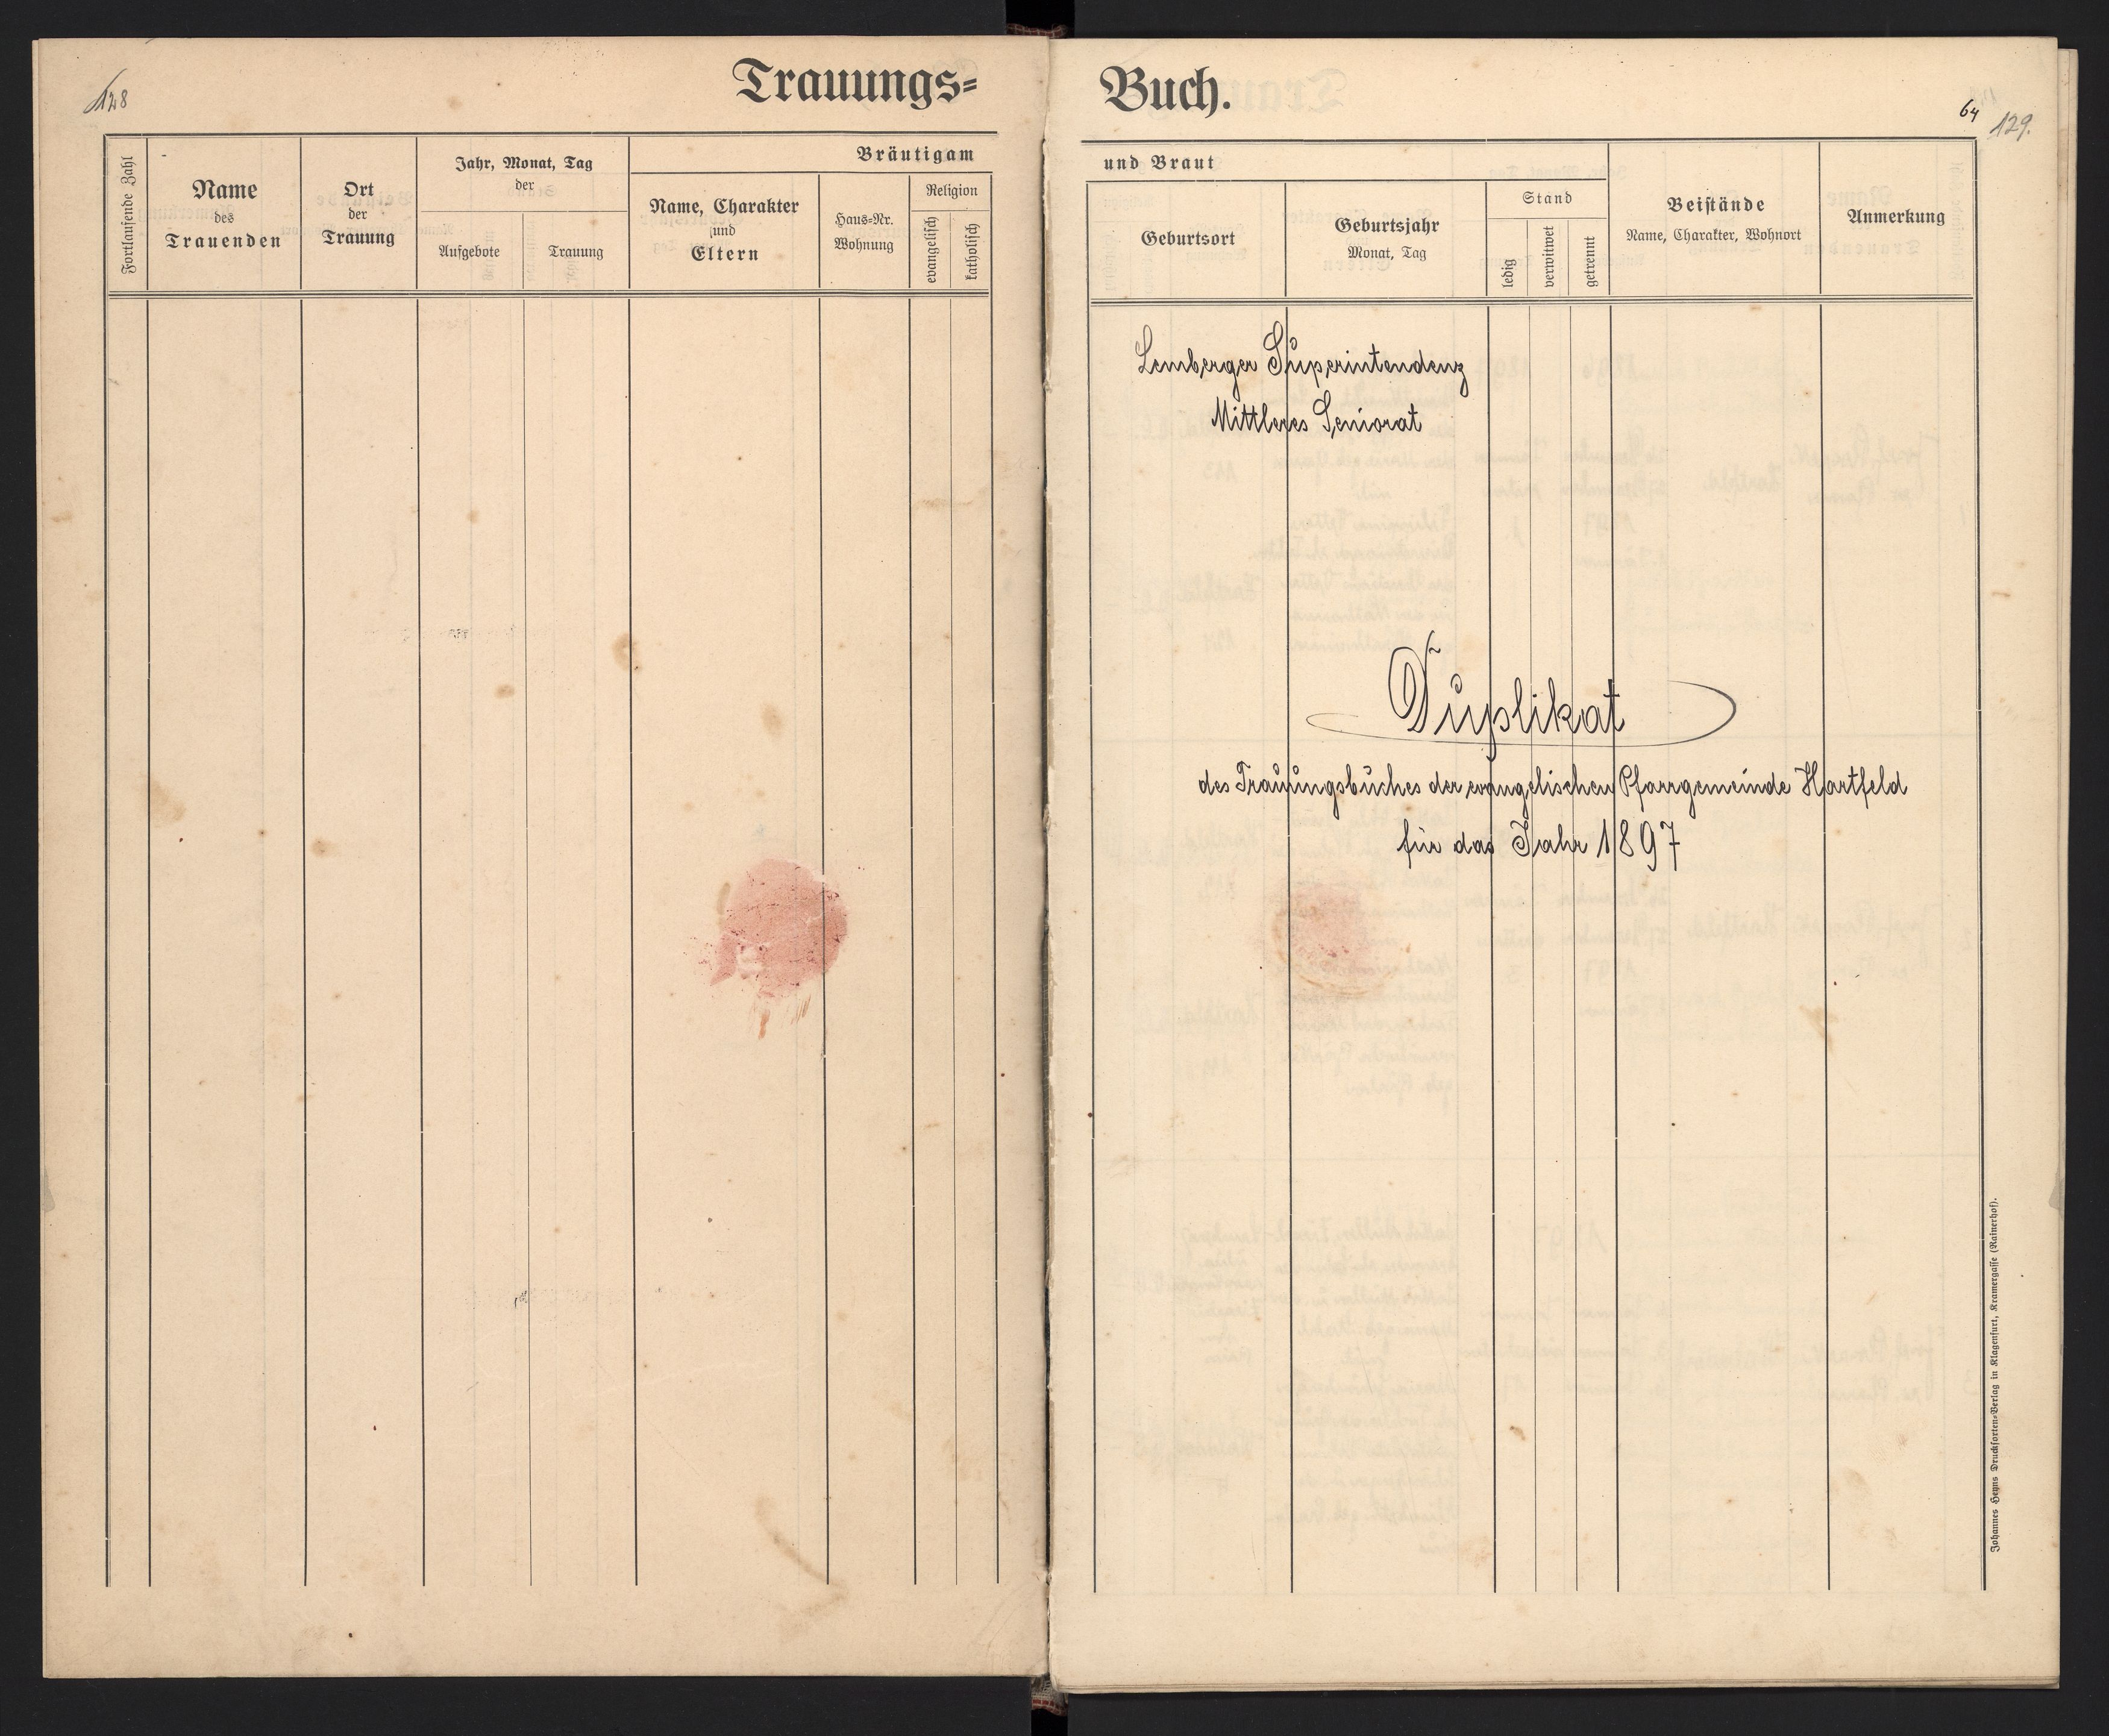 128
Trauungs=
Fortlaufende Zahl
Name
des
Trauenden
Ort
der
Trauung
Jahr, Monat, Tag
der
Aufgebote
Trauung
Bräutigam
Name, Charakter
und
Eltern
Haus=Nr.
Wohnung
Religion
evangelisch
katholisch
Buch.
64
129.
und Braut
Geburtsort
Geburtsjahr
Monat, Tag
Stand
ledig
verwitwet
getrennt
Beistände
Name, Charakter, Wohnort
Anmerkung
Lemberger Superintendenz
Mittleres Seniorat
Duplikat
des Trauungsbuches der evangelischen Pfarrgemeinde Hartfeld
für das Jahr 1897
Johannes Heyns Drucksorten=Verlag in Klagenfurt, Kramergasse (Rainerhof).